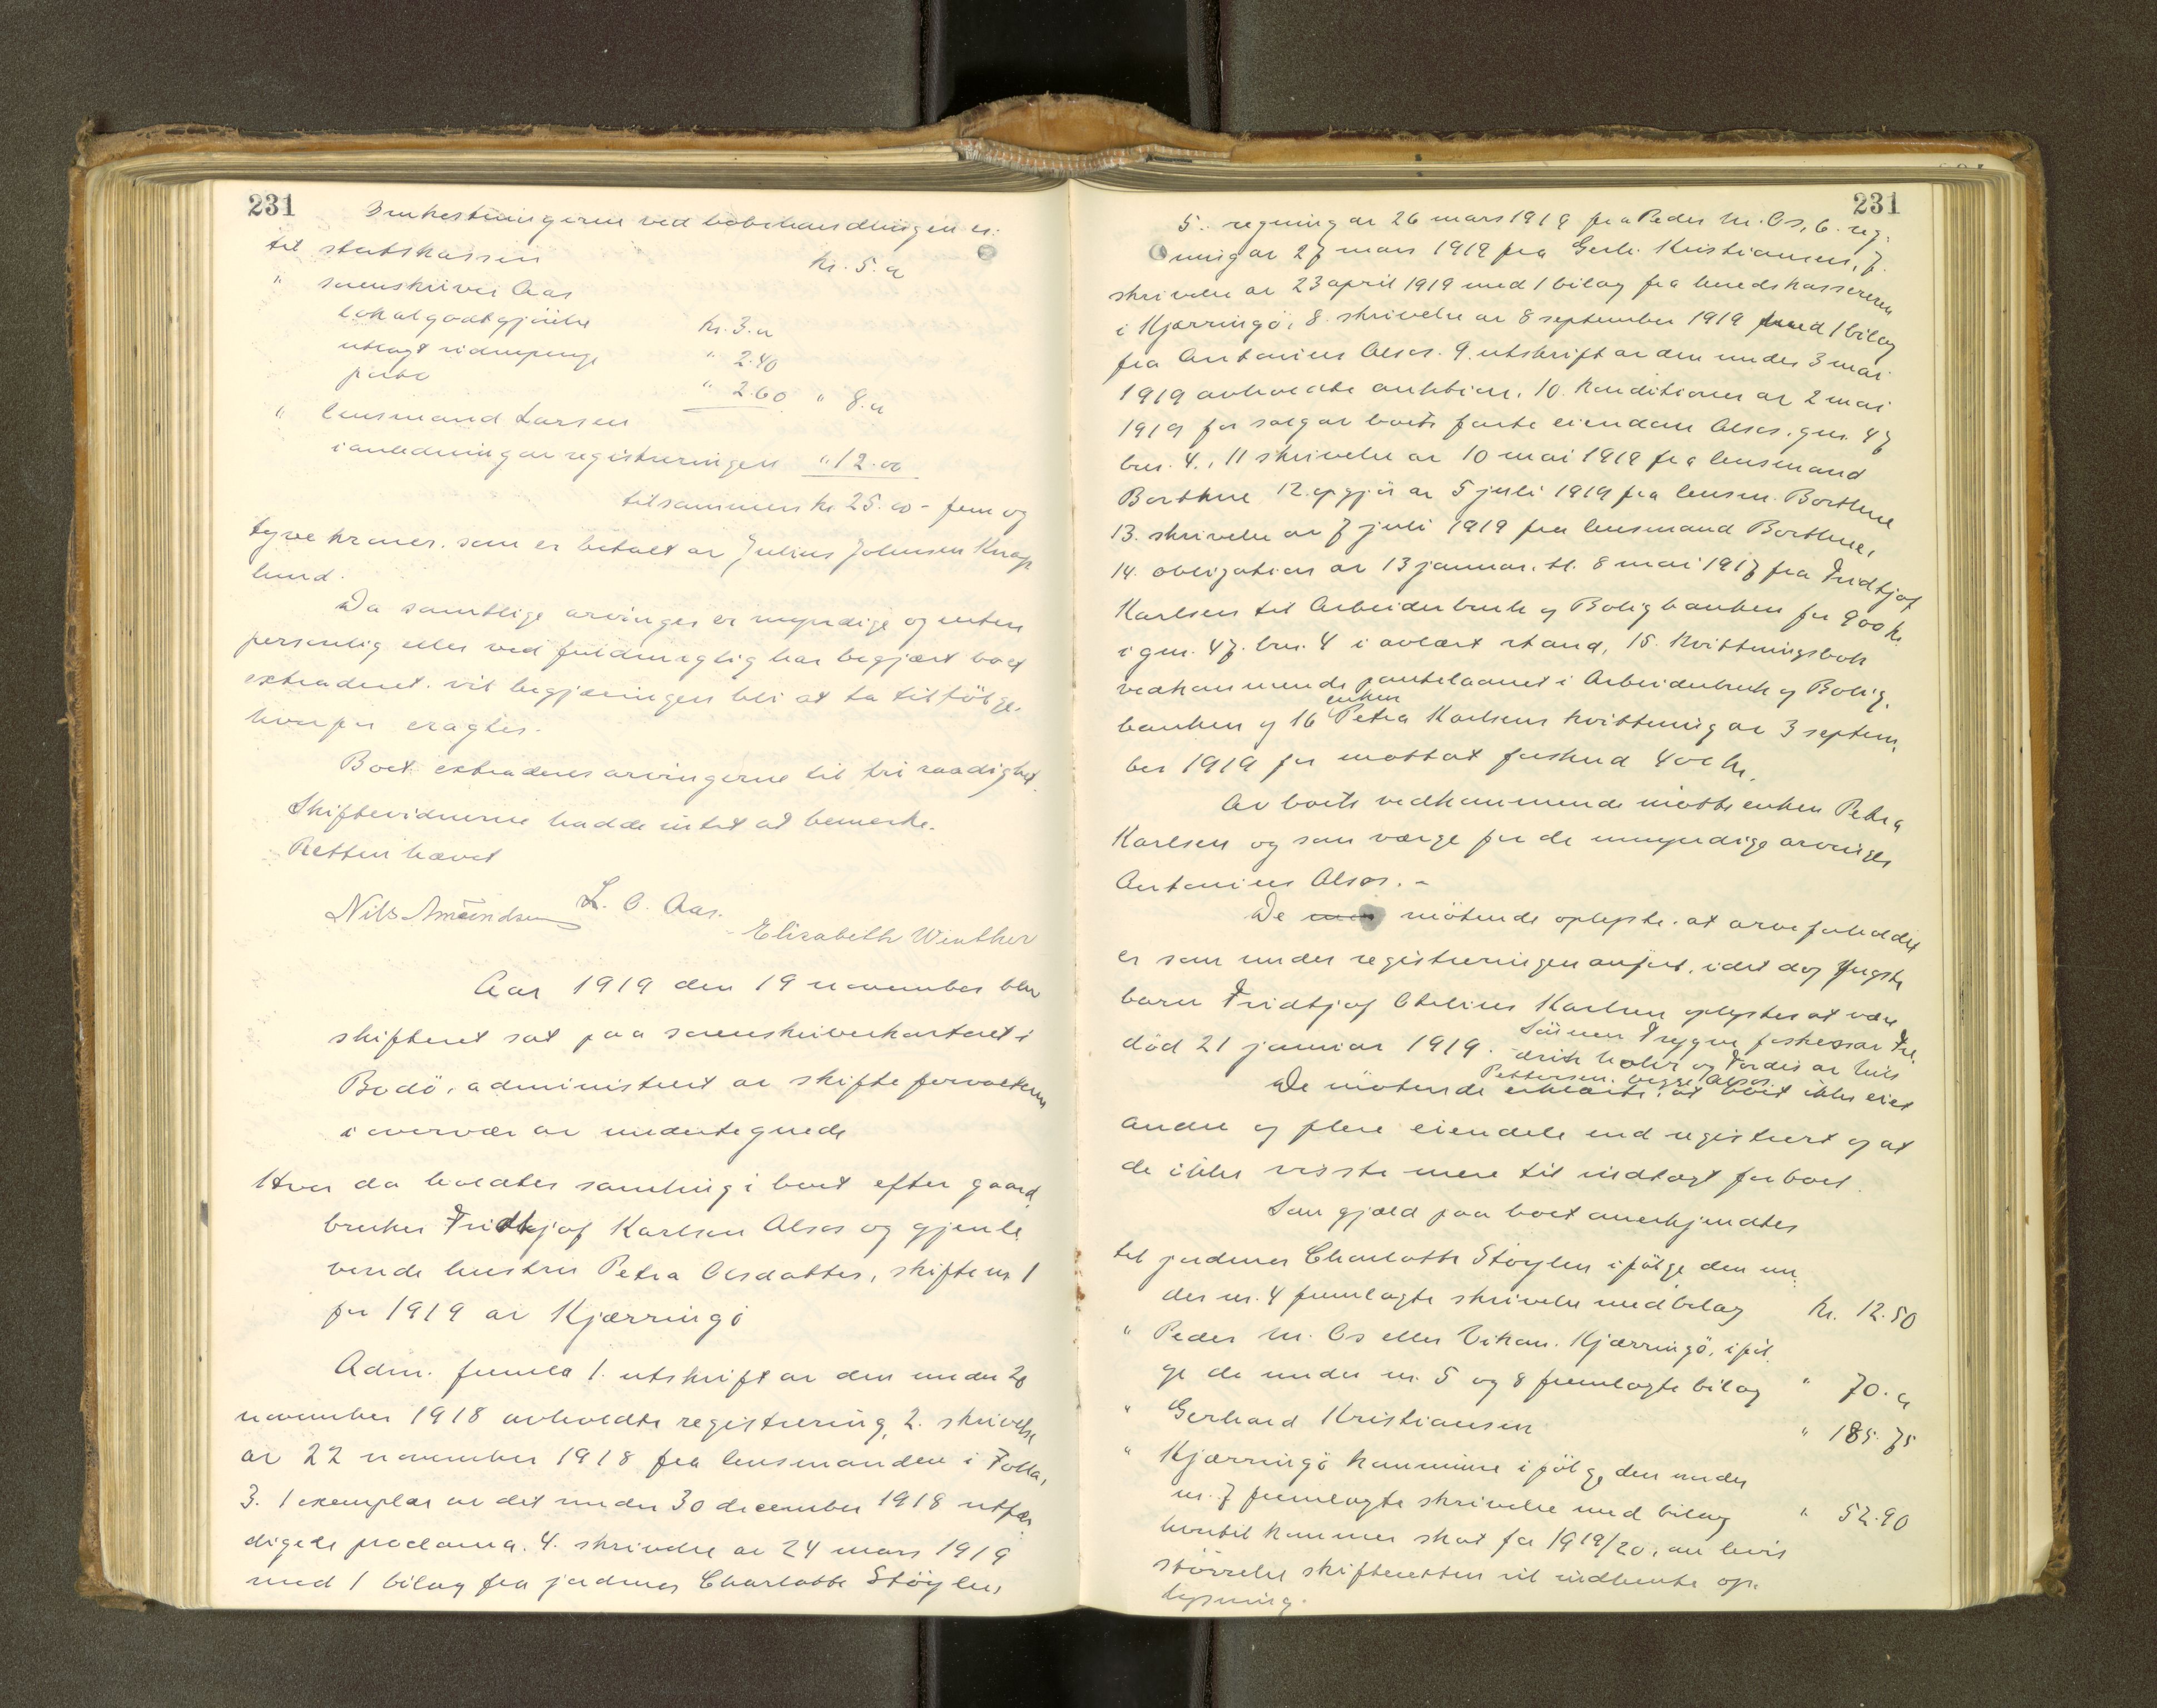 231
Omkostningerne ved bobehandlingen er:
til statskassen kr. 5.00
" sorenskriver Aas
lokalgodtgjörelse kr. 3.00
utlagt vidnepenge " 2.40
porto " 2.60 " 8.00
" lensmand Larsen
i anledning av registreringen " 12.00
tilsammen kr 25.00 - fem og
tyve kroner, som er betalt av Julius Johnsen Knap
lund.
Da samtlige arvinger er myndige og enten
personlig eller ved fuldmægtig har begjært boet
extraderet, vil begjæringen bli at ta tilfölge,
hvorfor eragtes.
Boet extraderes arvingerne til fri raadighet.
Skiftevidnerne hadde intet at bemerke.
Retten hævet
Nils Amundsen L. C. Aas. Elisabeth Winther
Aar 1919 den 19 november blev
skifteret sat paa sorenskriverkontoret i
Bodö, administrert av skifteforvalteren
i overvær av undertegnede
Hvor da holdtes samling i boet efter gaard
bruker Fridtjof Karlsen Alsos og gjenle
vende hustru Petra Olsdatter, skifte nr. 1
for 1919 av Kjærringö
Adm. fremla 1. utskrift av den under 20
november 1918 avholdte registrering, 2. skrivelse
av 22 november 1918 fra lensmanden i Folla,
3. 1 exemplar av det under 30 december 1918 utfær
digede proclama. 4. skrivelse av 24 mars 1919
med 1 bilag fra jordmor Charlotte Stöylen,
231
5. regning av 26 mars 1919 fra Peder M. Os, 6. reg-
ning av 27 mars 1919 fra Gerh. Kristiansen, 7.
skrivelse av 23 april 1919 med 1 bilag fra heredskassereren
i Kjærringö, 8. skrivelse av 8 september 1919 med 1 bilag
fra Antonius Alsos. 9. utskrift av den under 3 mai
1919 avholdte auktion. 10. konditioner av 2 mai
1919 for salg av boets faste eiendom Alsos, gnr. 47
bnr. 4., 11 skrivelse av 10 mai 1919 fra lensmand
Borthne 12. opgjör av 5 juli 1919 fra lensm. Borthne
13. skrivelse av 7 juli 1919 fra lensmand Borthne,
14. obligation av 13 januar, tl. 8 mai 1917 fra Fridtjof
Karlsen til Arbeiderbruk og Boligbanken for 900 kr.
i gnr. 47. bnr. 4 i avlæst stand, 15. kvitteringsbok
vedkommende pantelaanet i Arbeiderbruk og Bolig,
banken og 16 enken Petra Karlsens kvittering av 3 septem,
ber 1919 for mottat forskud 400 kr.
Av boets vedkommende mötte enken Petra
Karlsen og som værge for de umyndige arvinger
Antonius Alsos. -
De mötende oplyste, at arveforholdet
er som under registreringen anfört, idet dog yngste
barn Fridtjof Otelius Karlsen oplystes at være
död 21 januar 1919. Sönnen Trygve forsörges av Fre
drik Holm og Fordis av Nils
Pettersen, begge Alsos.
De mötende erklærte, at boet ikke eiet
andre og flere eiendele end registrert og at
de ikke visste mere til indtægt for boet.
Som gjæld paa boet anerkjendtes
til jordmor Charlotte Stöylen ifölge den un
der nr. 4 fremlagte skrivelse med bilag kr. 12.50
" Peder M. Os eller Vikan. Kjærringö, iföl
ge de under nr. 5 og 8 fremlagte bilag " 70.00
" Gerhard Kristiansen " 185.75
" Kjærringö kommune ifölge den under
nr. 7 fremlagte skrivelse med bilag " 52.90
hvortil kommer skat for 1919/20, om hvis
störrelse skifteretten vil indhente op-
lysning.